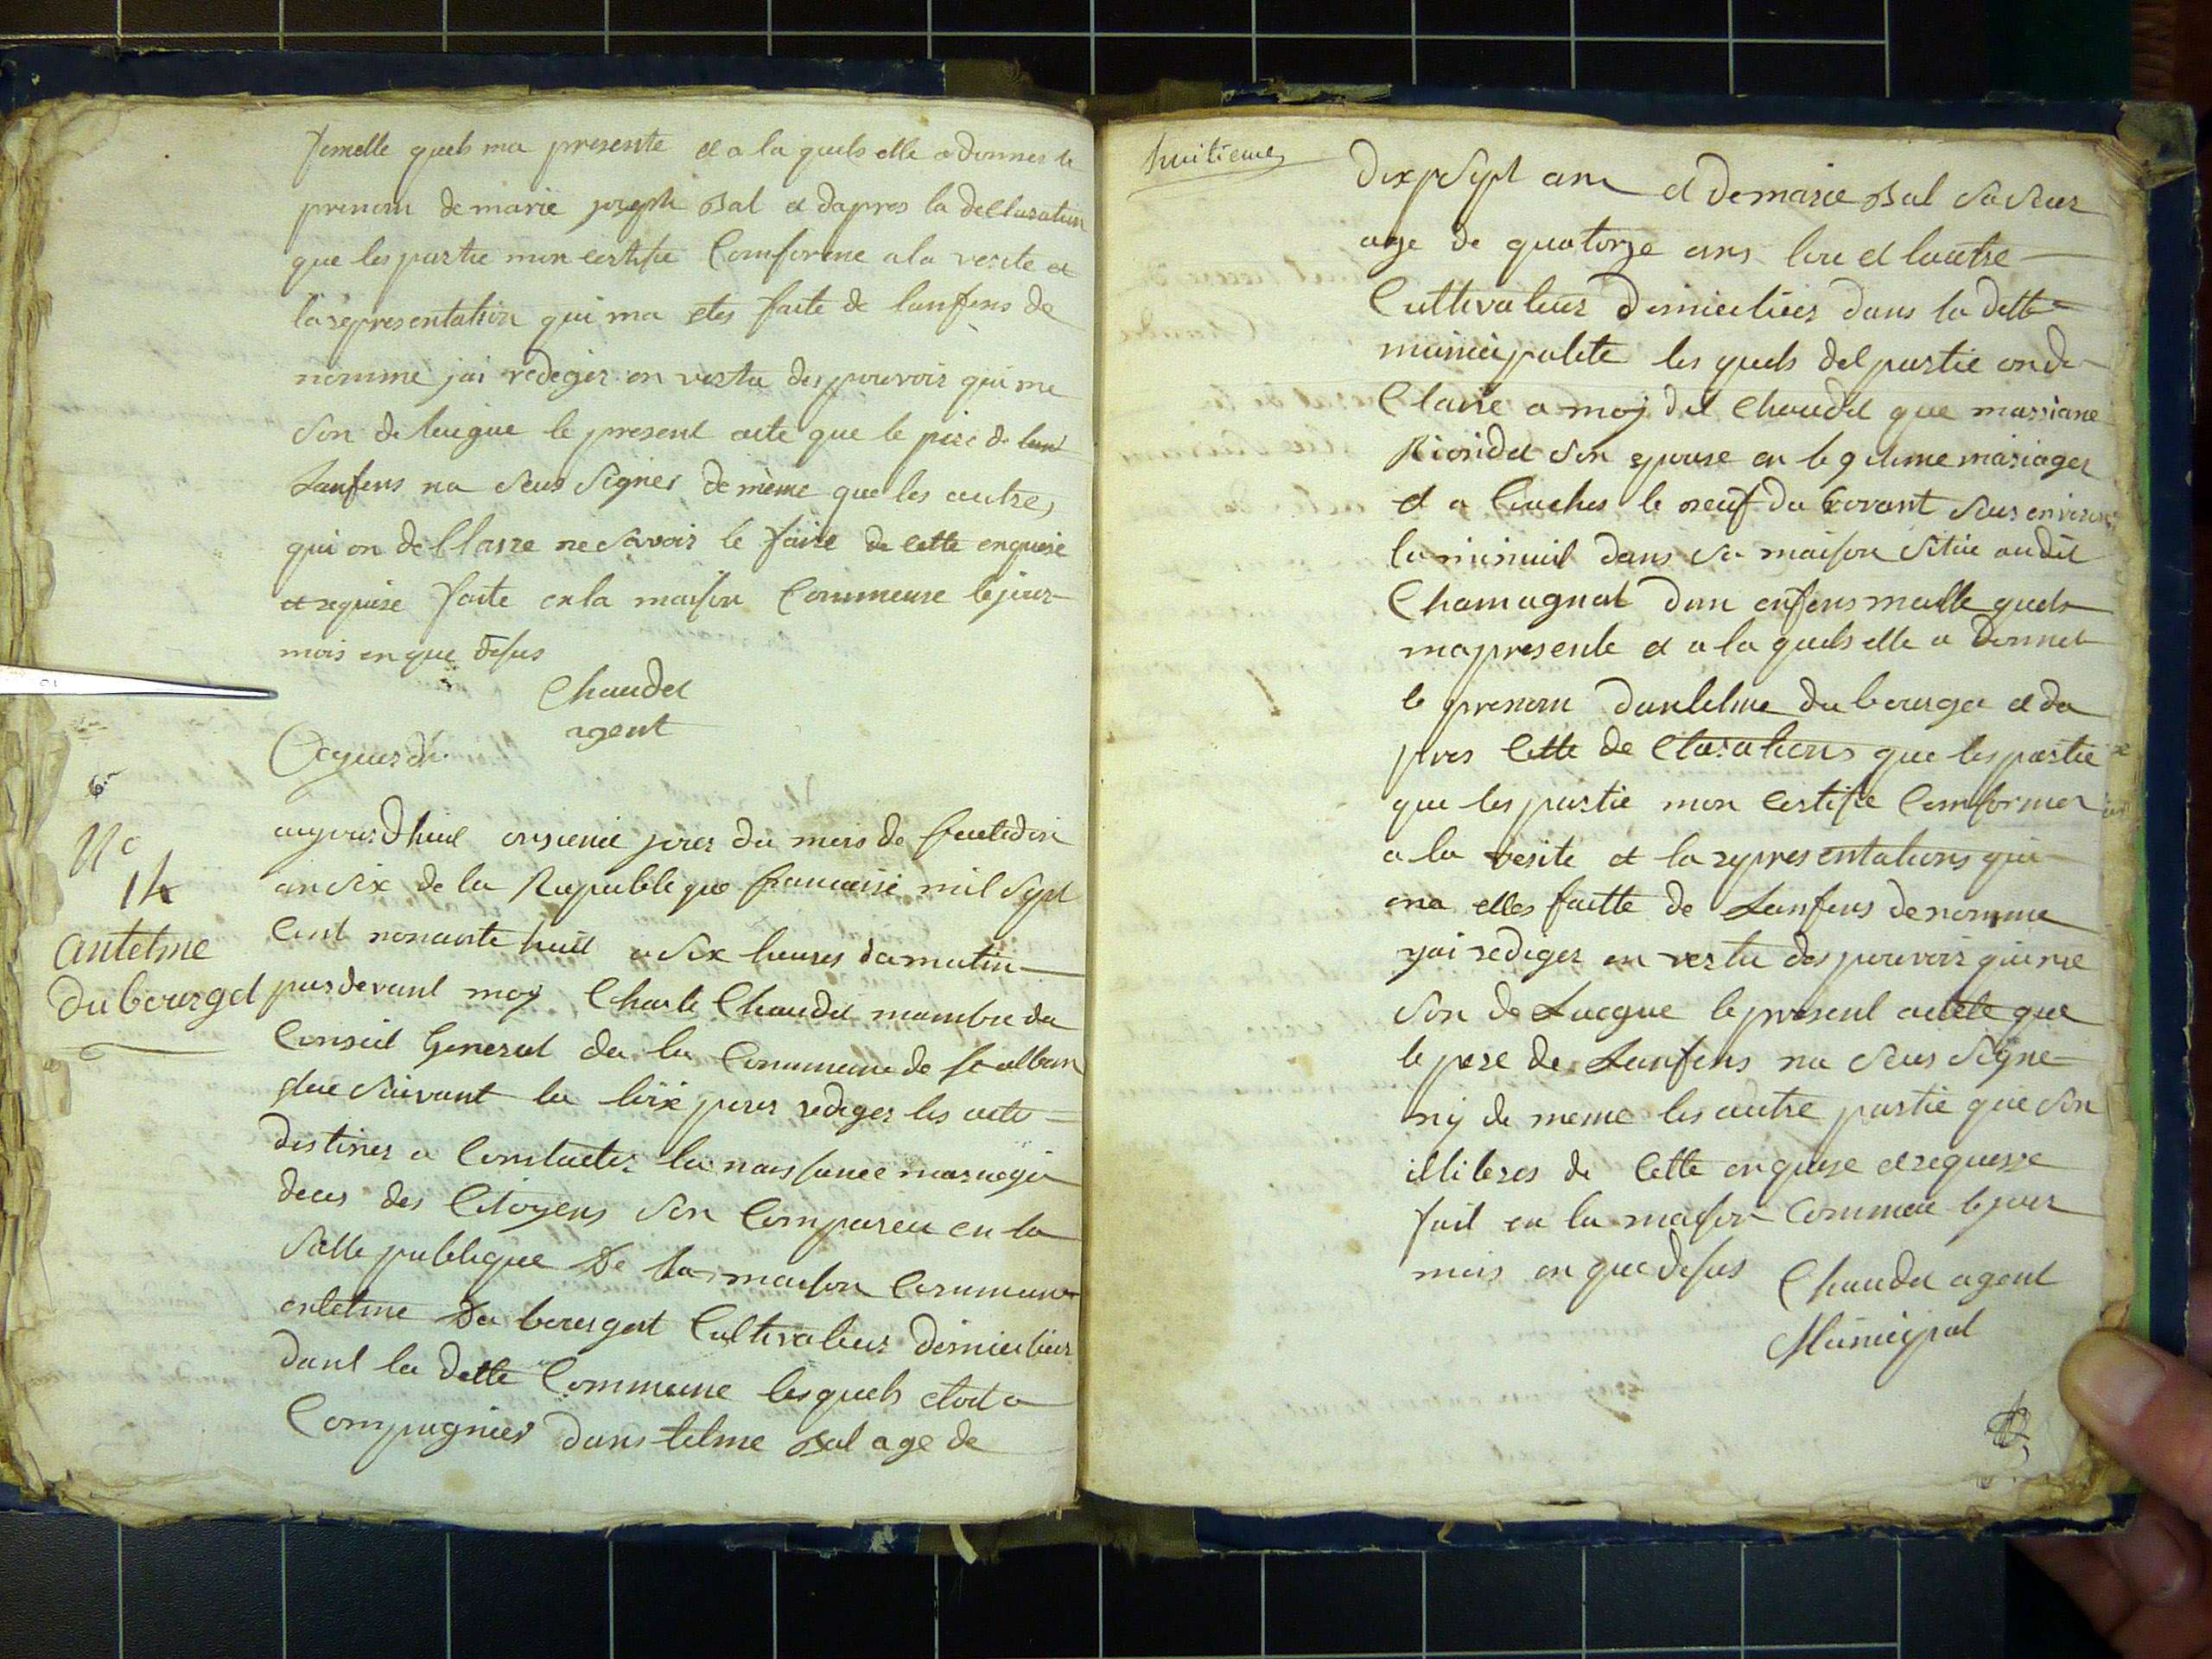 femelle quels ma presente et a la quels elle a donner le
prenom de marie joseph Bal et dapres la decllaration
que les partie mon certifie Comforme a la verite et
la representation qui ma etes faite de lanfens de
nomme jai rediger en vertu des pouvoir qui me
son deleigue le present acte que le pere de
Lanfens na seus signer de même que les autre
qui on decllarre ne savoir le faire de cette enquise
et requise faite en la maison Commeune le jour
mois en que desus
Chaudet
agent
6
No
14
antelme
du bourget
aujourdhuil onsieme jour du mois de fructidor
an six de la Republique francaise mil sept
Cent nonante huit a six heures du matin
pardevant moy Charle Chaudet mambre du
Conseil General de la Commune de st alban
elue suivant la loix pour rediger les acte
destiner a Constater la naissance mariage
deces des Citoyens son Compareu en la
salle publique De la maison Commune
entelme Du bourget Cultivateur domicilier
dant la dette Commeune lesquels etoit a
Compagnier dans telme Bal age de
huitieme
Dix sept ans et De marie Bal sa seur
age de quatorze ans lun et lautre
Cultivateur domicilier dans la dette
municipalite les quels del partie on de
Claire a moy dit Chaudet que marriane
Riondet son epouse en legitime mariager
et a Couches le neuf du Corant sur environ
la minuit dans sa maison sitiue audit
Chamagnat dun enfens malle quels
ma presente et a la quels elle a donnet
le prenom dantelme du bourget et da
pres Cette de Claration que les partie
que les partie mon certifie Comformer
a la verite et la representations qui
ma etter faitte de Lanfens denomme
jai rediger en vertu des pouvoir qui me
son de Luegue le present actete que
le pere de Lanfens na seus signe
ny de meme les autre partie que son
illiteres de Cette enquise et requisse
fait en la maison Commeue le jour
mois en que desus Chaudet agent
Municipal